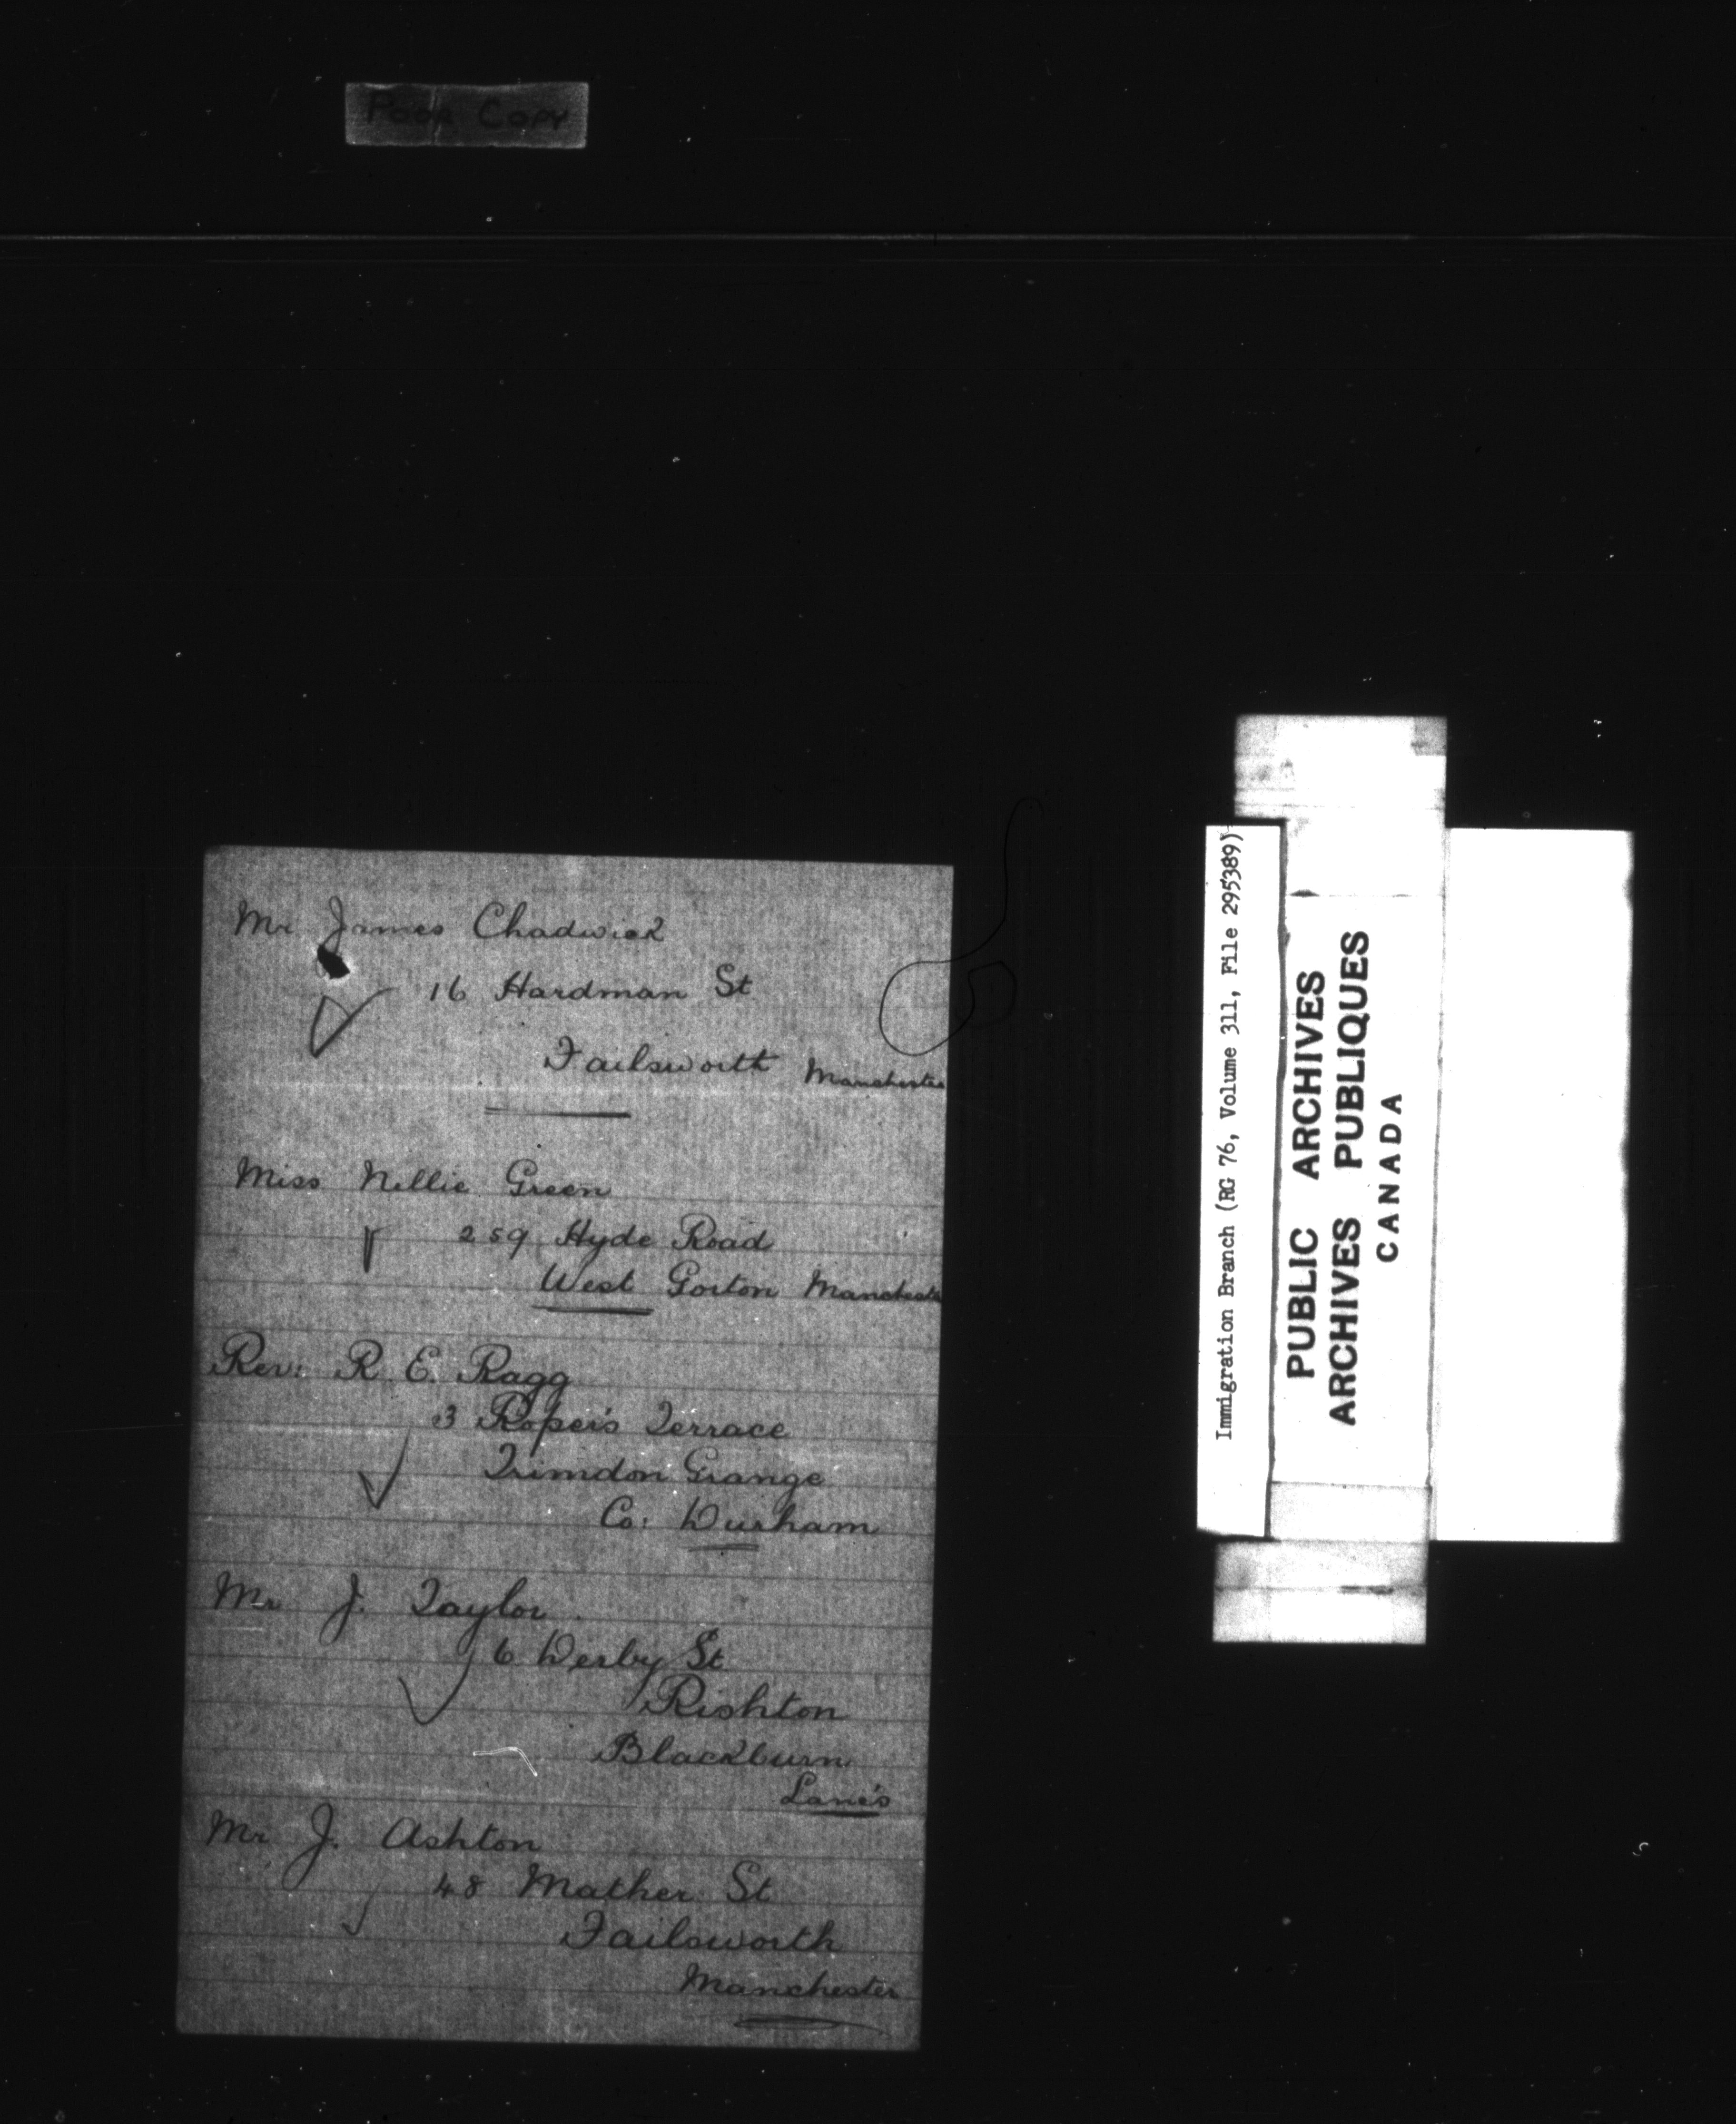 Poor Copy
Mr James Chadwick
16 Hardman St
Failsworth Manchester
Miss Nellie Green
259 Hyde Road
West Gorton Manchester
Rev: R. E. Ragg
3 Roper's Terrace
Trimdon Grange
Co: Durham
Mr J. Taylor
6 Derby St
Rishton
Blackburn
Lanc's
Mr J. Ashton
48 Mather St
Failsworth
Manchester
Immigration Branch (RG 76, Volume 311, File 295389)
PUBLIC ARCHIVES
ARCHIVES PUBLIQUES
CANADA